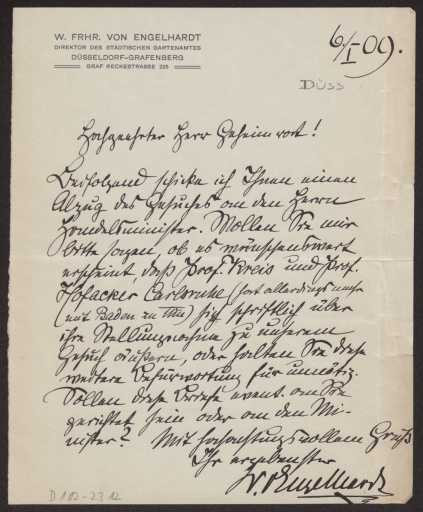 W. FRHR. VON ENGELHARDT
DIREKTOR DES STÄDTISCHEN GARTENAMTES
DÜSSELDORF-GRAFENBERG
GRAF RECKESTRASSE 225
6/I 09.
DÜSS
Hochgeehrter Herr Geheimrat!
Beifolgend schicke ich Ihnen einen
Abzug des Gesuches an den Herrn
Handelsminister. Wollen Sie mir
bitte sagen, ob es wünschenswert
erscheint, daß Prof. Kreis und Prof.
Hofacker Carlsruhe (hat allerdings mehr
(mit Baden zu thu) sich schriftlich über
ihre Stellungnahme zu unserem
Gesuch äußern, oder halten Sie diese
weitere Befürwortung für unnötig.
Sollen diese Briefe event. an Sie
gerichtet sein oder an den Mi-
nister? Mit hochachtungsvollem Gruß
Ihr ergebenster
W. v Engelhardt
D 102-2312